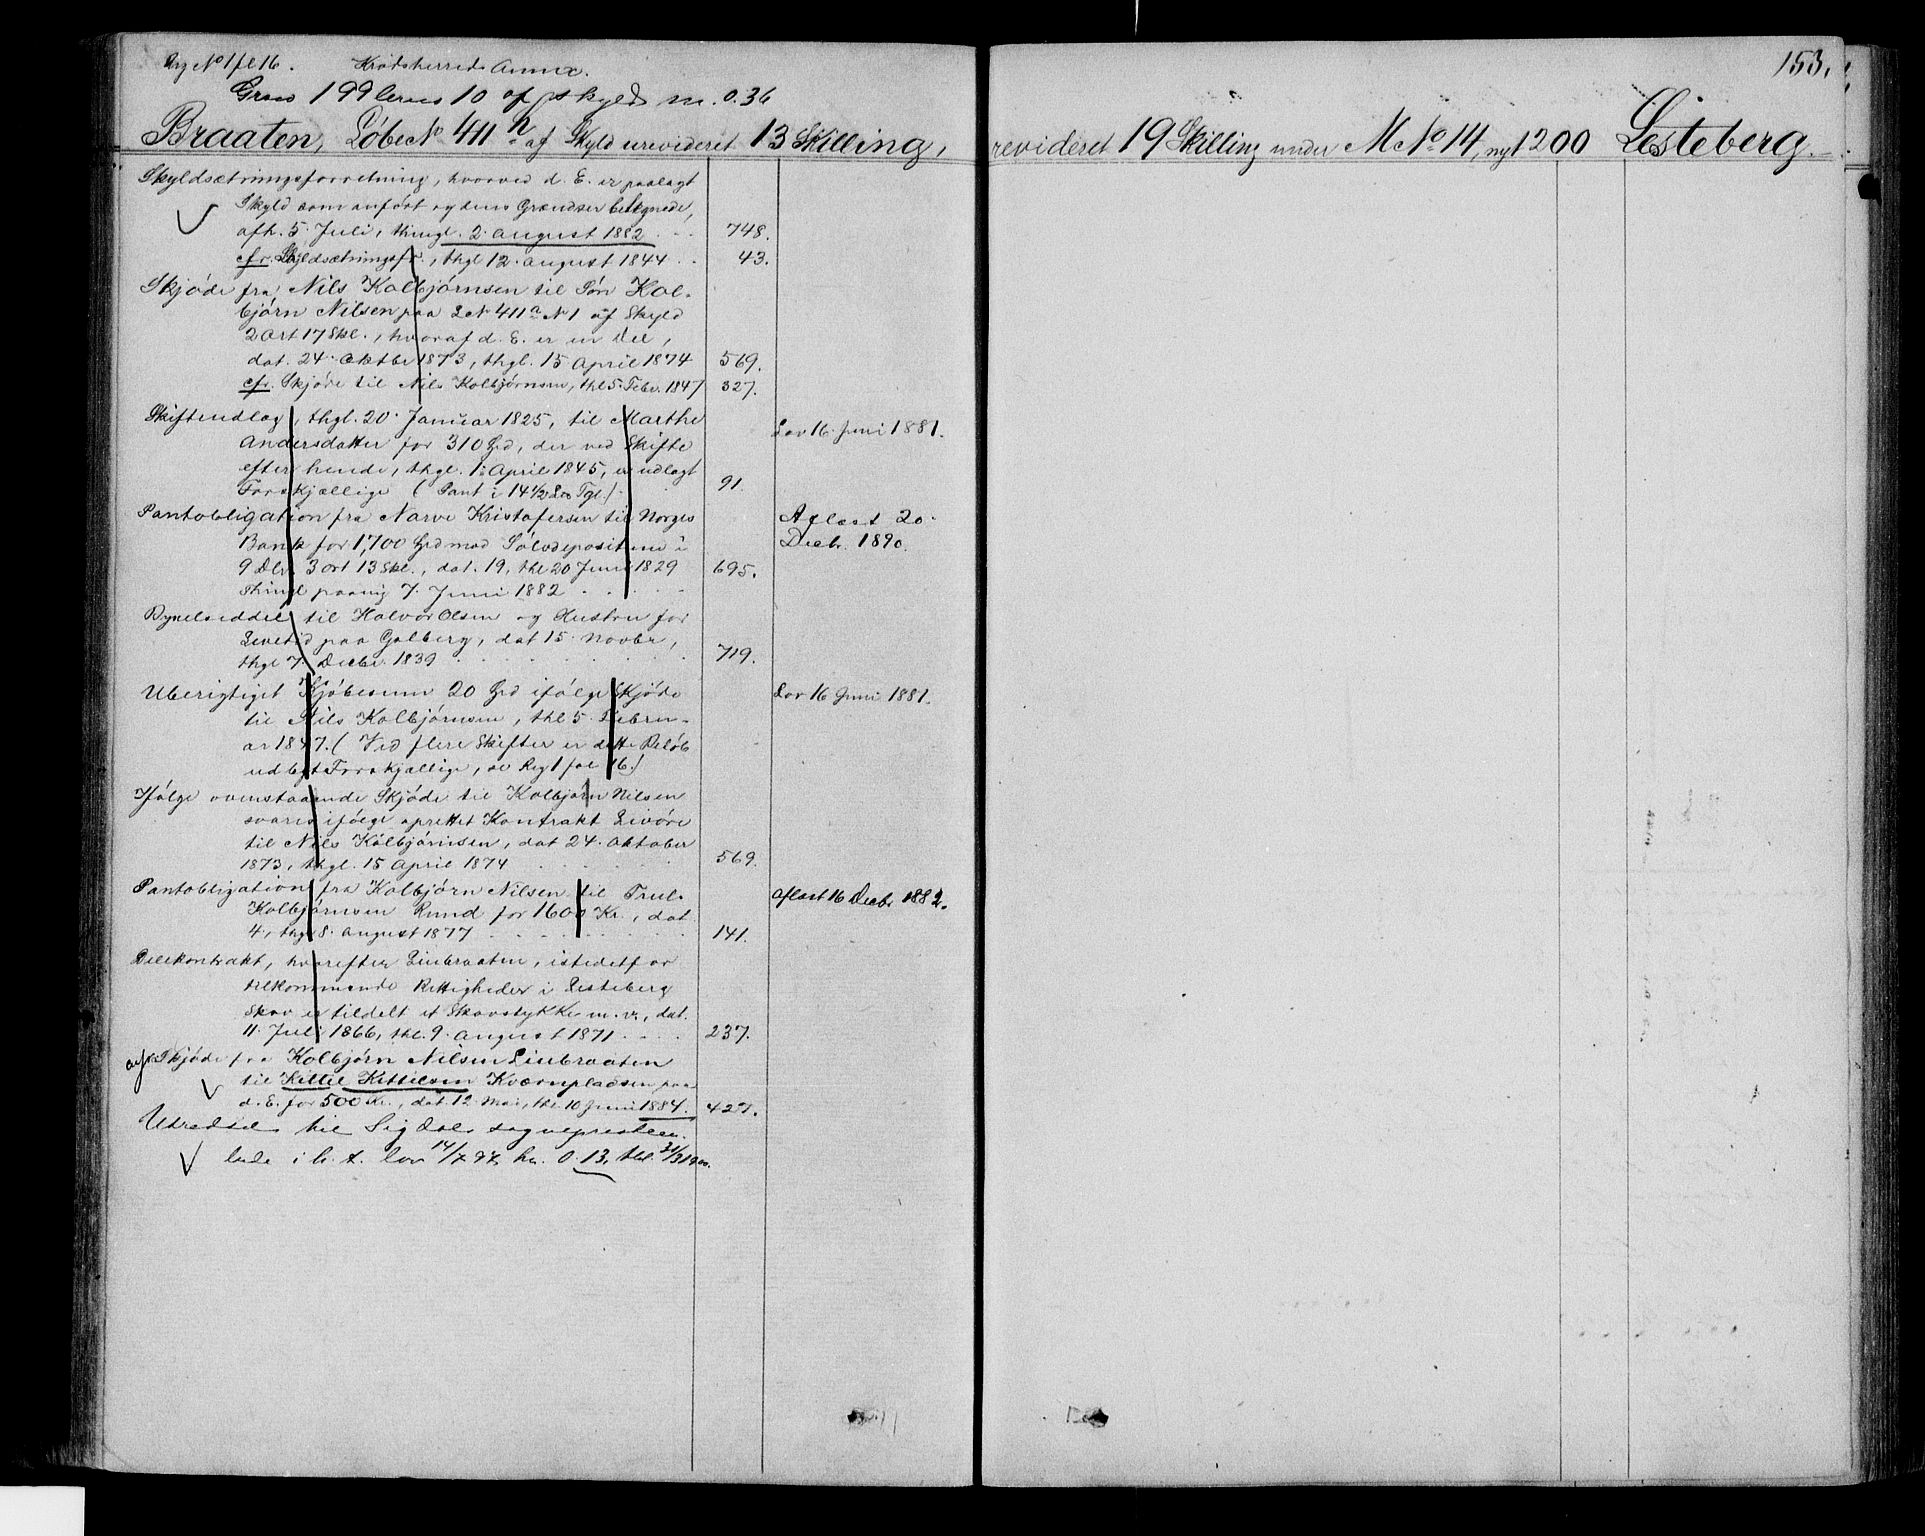 Reg No 1 fol 16. Krødsherreds Annex. 153.
Grno 199 brno 10 af skyld m. 0.36
Braaten, Løbe No 411 h af Skyld urevideret 13 Skilling, revideret 19 Skilling under M No 14, nyt 200 Lesteberg.
Skyldsætningsforretning, hvorved d. E. er paalagt
Skyld som anført og dens Grændser betegnede,
afh. 5 Juli, thingl. 2 August 1882 . . 748.
cfr. Skyldsætningsf., thgl 12 August 1844 . . 43.
Skjøde fra Nils Kolbjørnsen til Søn Kol-
bjørn Nilsen paa L No 411 a No 1 af Skyld
2 Ort 17 Skl., hvoraf d. E. er en Del,
dat. 24 Oktbr 1873, thgl. 15 April 1874 569.
cfr. Skjøde til Nils Kolbjørnsen, thl 5 Febr. 1847 327.
Skifteudlæg, thgl. 20 Januar 1825, til Marthe Lov 16 Juni 1881.
Andersdatter for 310 Spd, der ved Skifte
efter hende, thgl. 1 April 1845, er udlagt
Forskjællige (Pant i 14 1/2 Tgl.) . 91
Pantobligation fra Narve Kristofersen til Norges Aflæst 20
Bank for 1,700 Spd mod Sølvdepositum i Decbr. 1890.
9 Dlr 3 Ort 13 Skl., dat. 19, thl 20 Juni 1829 695.
Thingl paany 7 Juni 1882 . . . .
Bygselseddel til Halvor Olsen og Hustru for
Livstid paa Golberg, dat 15 Novbr,
thgl 7 Decbr. 1839 . . . . . . 719.
Uberigtiget Kjøbesum 20 Spd ifølge Skjøde Lov 16 Juni 1881.
til Nils Kolbjørnsen, thl 5 Febru-
ar 1847. (Ved flere Skifter er dette Beløb
udlagt Forskjællige, se Reg 1 fol 16.)
Ifølge ovenstaaende Skjøde til Kolbjørn Nilsen
svares ifølge oprettet Kontrakt Livøre
til Nils Kolbjørnsen, dat 24 Oktober
1873, thgl. 15 April 1874 . . . . . 569.
Pantobligation fra Kolbjørn Nilsen til Truls aflæst 16 Decbr 1882.
Kolbjørnsen Rund for 1600 Kr., dat
4, thgl 8 August 1877 . . . . . 141.
Delekontrakt, hvorefter Liebraaten, istedetfor
tilkommende Rettigheder i Lesteberg
Skov er tildelt et Skovstykke m. v., dat.
11 Juli 1866, thl. 9 August 1871 . . . . 237.
Skjøde fra Kolbjørn Nilsen Liebraaten
til Kittil Kittilsen Kværnpladsen paa
d. E. for 500 Kr., dat. 12 Mai, thl 10 Juni 1884. 427.
Utredsel til Sigdals sognepresteem-
bede i h. t. lov 14/7 97 kr. 0.13, thl. 31/3 1900.